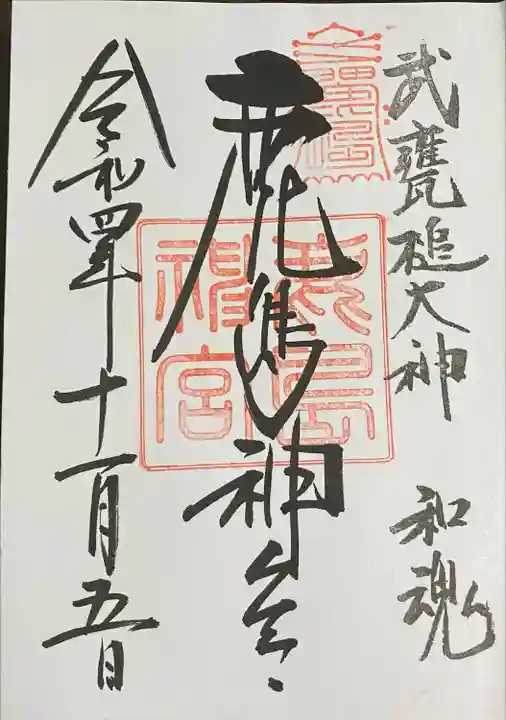 武甕槌大神 和魂
鹿島神宮
鹿島神宮
令和四年十一月五日